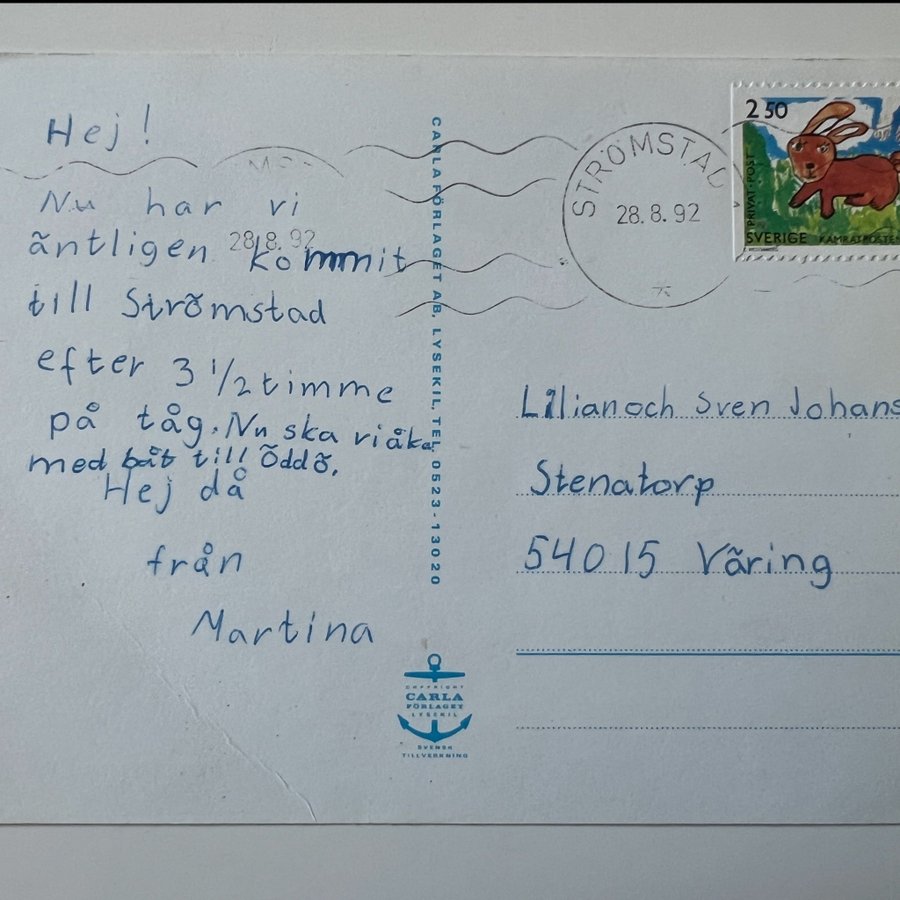 Hej!
Nu har vi
äntligen kommit
till Strömstad
efter 3 1/2 timme
på tåg. Nu ska vi åka
med båt till Öddö.
Hej då
från
Martina
CARLAFÖRLAGET AB, LYSEKIL, TEL 0523-13020
COPYRIGHT
CARLA
FÖRLAGET
LYSEKIL
SVENSK
TILLVERKNING
STRÖMSTAD
28.8.92
28.8.92
2 50
PRIVAT-POST
SVERIGE KAMRATPOSTEN
Lilian och Sven Johans
Stenatorp
54015 Väring